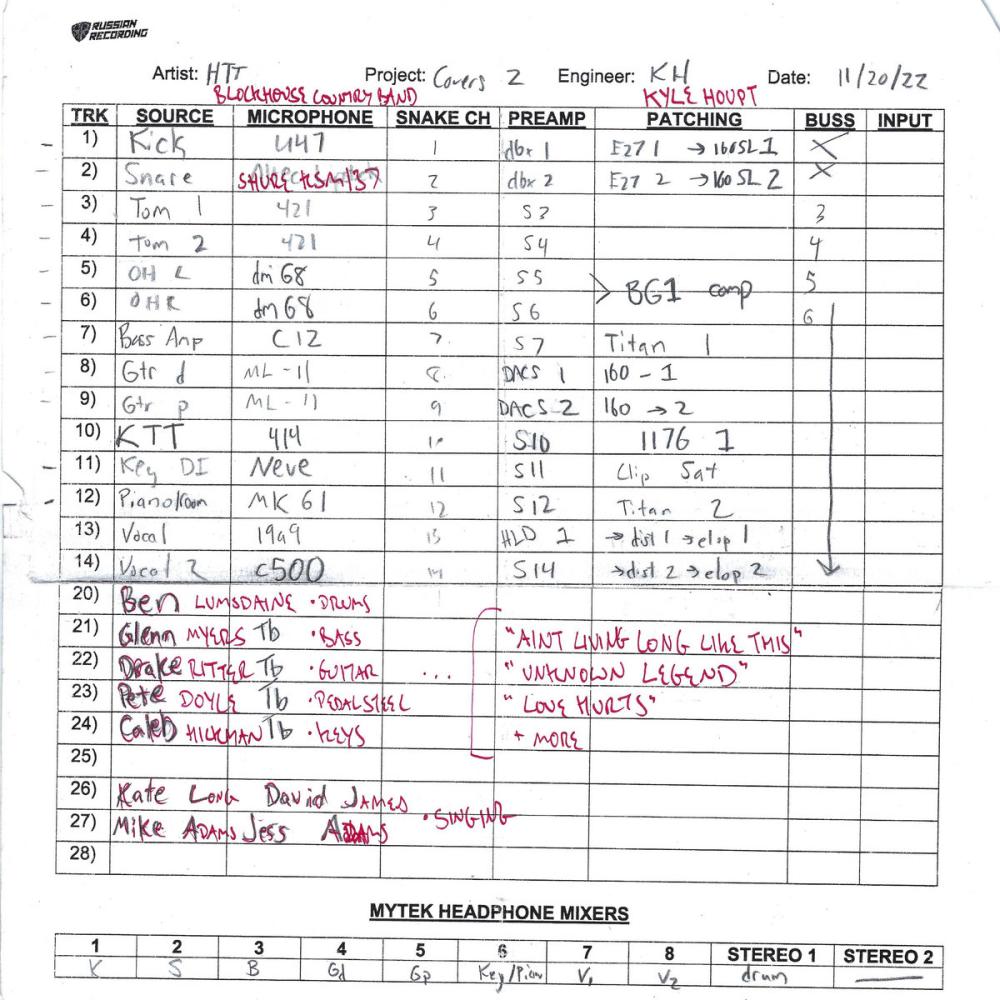 RUSSIAN RECORDING
Artist: HTT Project: Covers 2 Engineer: KH Date: 11/20/22
BLOCKHOUSE COUNTRY BAND KYLE HOUPT
TRK SOURCE MICROPHONE SNAKE CH PREAMP PATCHING BUSS INPUT
1) Kick U47 1 dbx 1 E27 1 → 160SL 1 X
2) Snare SHURE KSM137 2 dbx 2 E27 2 → 160 SL 2 X
3) Tom 1 421 3 S3 3
4) Tom 2 421 4 S4 4
5) OH L dm 68 5 S5 > BG1 comp 5
6) OHR dm 68 6 S6 6
7) Bass Amp C12 7 S7 Titan 1
8) Gtr d ML-11 8 DACS 1 160 - 1
9) Gtr p ML-11 9 DACS 2 160 → 2
10) KTT 414 10 S10 1176 1
11) Key DI Neve 11 S11 Clip Sat
12) Piano/room MK 61 12 S12 Titan 2
13) Vocal 19a9 13 HLD 1 → dist 1 → elop 1
14) Vocal 2 C500 14 S14 → dist 2 → elop 2
20) Ben LUMSDAINE • DRUMS
21) Glenn MYERS Tb • BASS "AINT LIVING LONG LIKE THIS"
22) Drake RITTER Tb • GUITAR ... "UNKNOWN LEGEND"
23) Pete DOYLE Tb • PEDAL STEEL "LOVE HURTS"
24) Caleb HICKMAN Tb • KEYS + MORE
25)
26) Kate LONG David JAMES
27) Mike ADAMS Jess ADAMS • SINGING
28)
MYTEK HEADPHONE MIXERS
1 2 3 4 5 6 7 8 STEREO 1 STEREO 2
K S B Gd Gp Key/Pian V1 V2 drum